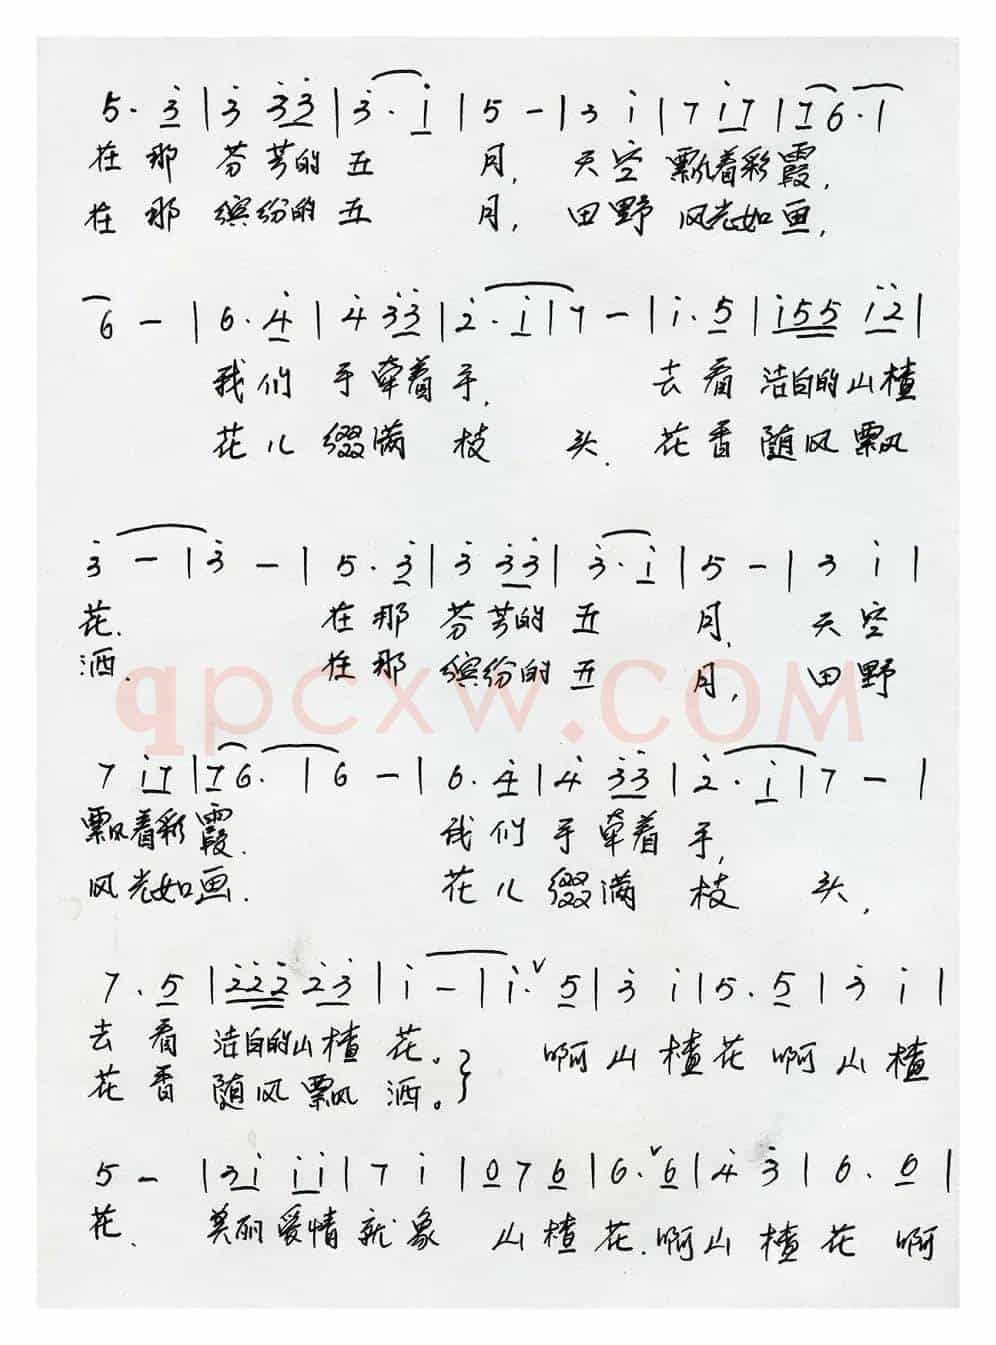 5. 3̇ | 3̇ 3̇3̇ | 3̇. i̇ | 5 - | 3 i̇ | 7 i̇7 | 76. |
在那 芬芳的五 月, 天空 飘着彩霞,
在那 缤纷的五 月, 田野 风光如画,
6 - | 6. 4̇ | 4̇ 3̇3̇ | 2̇. i̇ | 7 - | i̇. 5 | i̇55 i̇2̇ |
我们 手牵着手, 去看 洁白的山楂
花儿 缀满 枝 头. 花香 随风飘
3̇ - | 3̇ - | 5. 3̇ | 3̇ 3̇3̇ | 3̇. i̇ | 5 - | 3 i̇ |
花. 在那 芬芳的 五 月, 天空
洒. 在那 缤纷的五 月, 田野
qpcxw.COM
7 i̇7 | 76. | 6 - | 6. 4̇ | 4̇ 3̇3̇ | 2̇. i̇ | 7 - |
飘着彩霞. 我们 手牵着 手,
风光如画. 花儿 缀满 枝 头,
7. 5 | 2̇2̇2̇ 2̇3̇ | i̇ - | i̇. ∨ 5 | 3 i̇ | 5. 5 | 3 i̇ |
去看 洁白的山楂 花。} 啊山楂花 啊山楂
花香 随风飘 洒。
5 - | 3i̇ i̇i̇ | 7 i̇ | 0 7 6 | 6. ∨ 6 | 4̇ 3̇ | 6. 6 |
花. 美丽爱情就象 山楂花.啊山楂花 啊